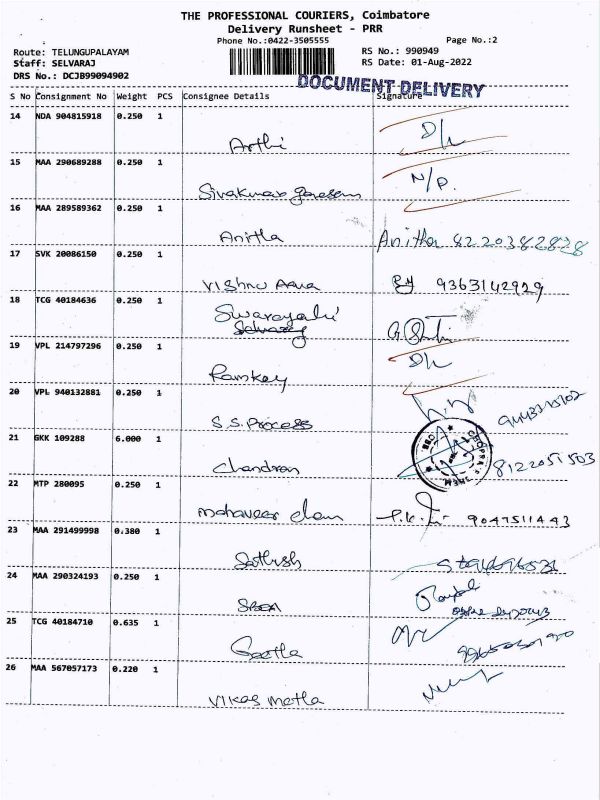 THE PROFESSIONAL COURIERS, Coimbatore
Delivery Runsheet - PRR
Phone No.:0422-3505555
Page No.:2
Route: TELUNGUPALAYAM
RS No.: 990949
Staff: SELVARAJ
RS Date: 01-Aug-2022
DRS No.: DCJB99094902
DOCUMENT DELIVERY
S No Consignment No Weight PCS Consignee Details Signature
14 NDA 904815918 0.250 1
Arthi D/L
15 MAA 290689288 0.250 1
Sivakumar Ganesan N/P.
16 MAA 289589362 0.250 1
Anitha Anitha 8220382828
17 SVK 20086150 0.250 1
Vishnu 9363142929
18 TCG 40184636 0.250 1
19 VPL 214797296 0.250 1
Ramkey D/L
20 VPL 940132881 0.250 1
S.S.Process
21 GKK 109288 6.000 1
Chandran 8122051503
22 MTP 280095 0.250 1
mahaveer 9047511443
23 MAA 291499998 0.380 1
Sathish
24 MAA 290324193 0.250 1
25 TCG 40184710 0.635 1
Geetha
26 MAA 567057173 0.220 1
Vikas metha